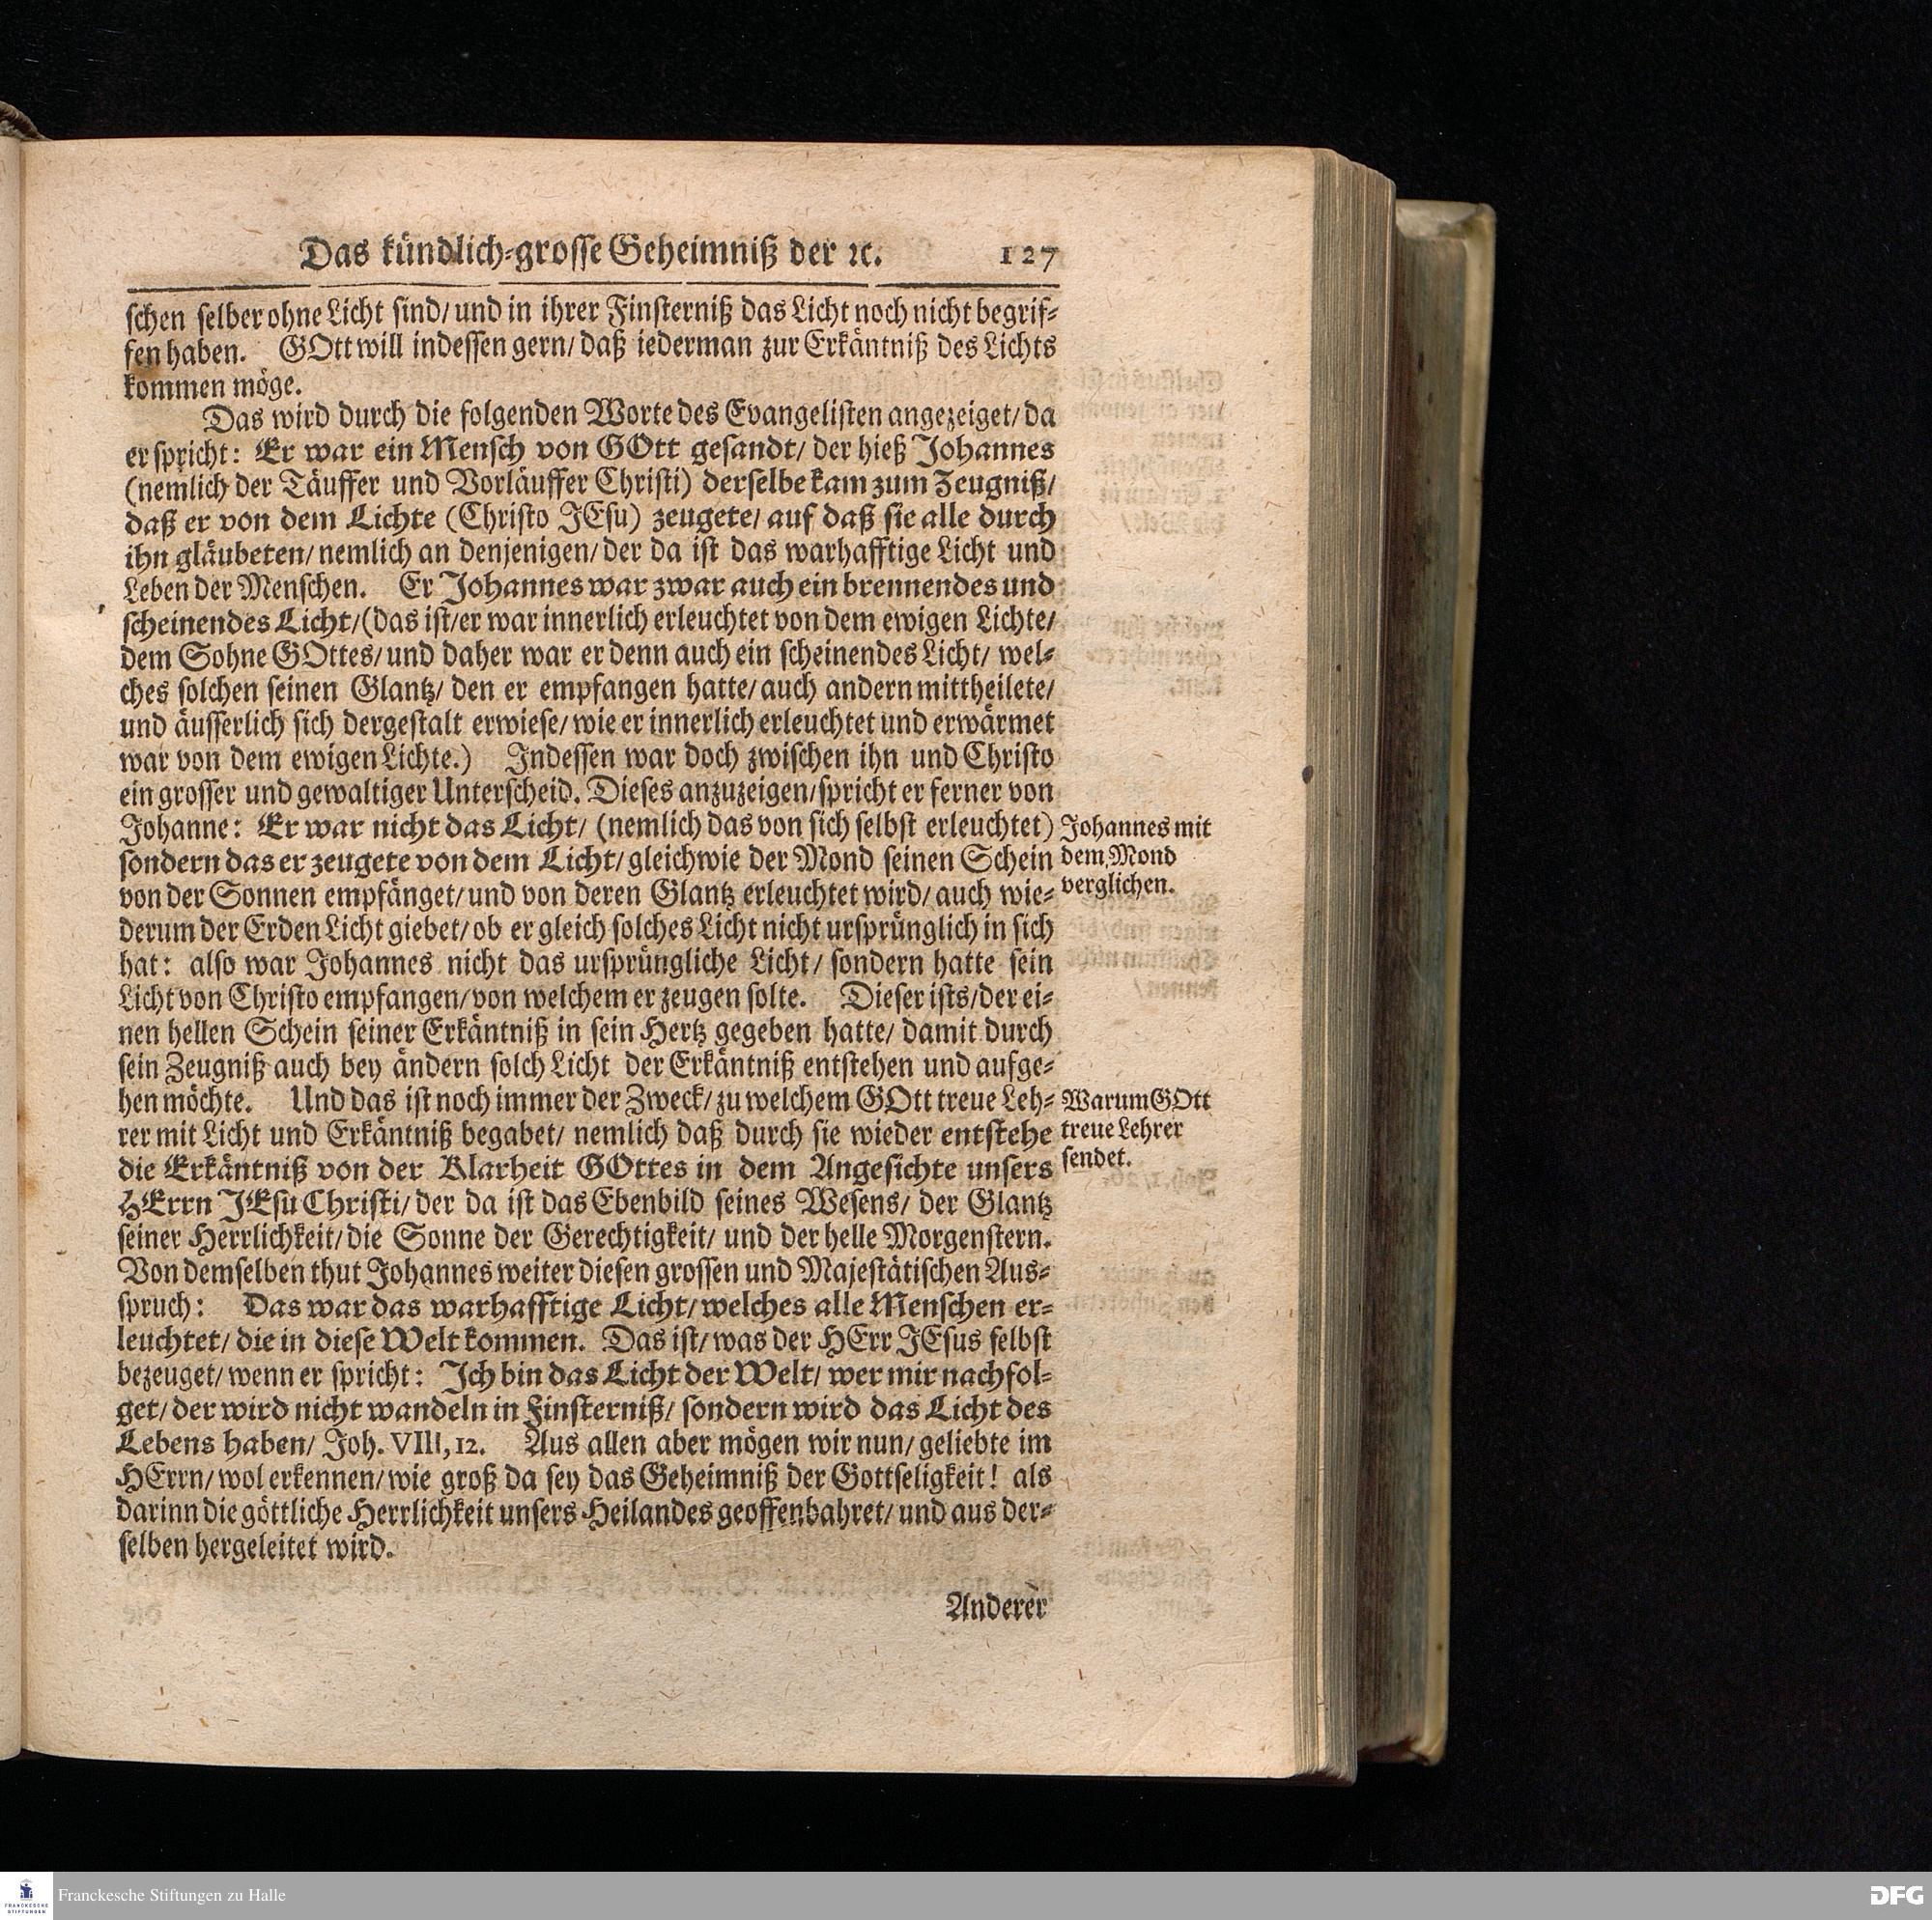 Das kündlich-grosse Geheimniß der ꝛc. 127
schen selber ohne Licht sind/ und in ihrer Finsterniß das Licht noch nicht begrif-
fen haben. GOtt will indessen gern/ daß iederman zur Erkäntniß des Lichts
kommen möge.
Das wird durch die folgenden Worte des Evangelisten angezeiget/ da
er spricht: Er war ein Mensch von GOtt gesandt/ der hieß Johannes
(nemlich der Täuffer und Vorläuffer Christi) derselbe kam zum Zeugniß/
daß er von dem Lichte (Christo JEsu) zeugete/ auf daß sie alle durch
ihn gläubeten/ nemlich an denjenigen/ der da ist das warhafftige Licht und
Leben der Menschen. Er Johannes war zwar auch ein brennendes und
scheinendes Licht/ (das ist/ er war innerlich erleuchtet von dem ewigen Lichte/
dem Sohne GOttes/ und daher war er denn auch ein scheinendes Licht/ wel-
ches solchen seinen Glantz/ den er empfangen hatte/ auch andern mittheilete/
und äusserlich sich dergestalt erwiese/ wie er innerlich erleuchtet und erwärmet
war von dem ewigen Lichte.) Indessen war doch zwischen ihn und Christo
ein grosser und gewaltiger Unterscheid. Dieses anzuzeigen/ spricht er ferner von
Johanne: Er war nicht das Licht/ (nemlich das von sich selbst erleuchtet)
sondern das er zeugete von dem Licht/ gleichwie der Mond seinen Schein
von der Sonnen empfänget/ und von deren Glantz erleuchtet wird/ auch wie-
derum der Erden Licht giebet/ ob er gleich solches Licht nicht ursprünglich in sich
hat: also war Johannes nicht das ursprüngliche Licht/ sondern hatte sein
Licht von Christo empfangen/ von welchem er zeugen solte. Dieser ists/ der ei-
nen hellen Schein seiner Erkäntniß in sein Hertz gegeben hatte/ damit durch
sein Zeugniß auch bey ändern solch Licht der Erkäntniß entstehen und aufge-
hen möchte. Und das ist noch immer der Zweck/ zu welchem GOtt treue Leh-
rer mit Licht und Erkäntniß begabet/ nemlich daß durch sie wieder entstehe
die Erkäntniß von der Klarheit GOttes in dem Angesichte unsers
HErrn JEsu Christi/ der da ist das Ebenbild seines Wesens/ der Glantz
seiner Herrlichkeit/ die Sonne der Gerechtigkeit/ und der helle Morgenstern.
Von demselben thut Johannes weiter diesen grossen und Majestätischen Aus-
spruch: Das war das warhafftige Licht/ welches alle Menschen er-
leuchtet/ die in diese Welt kommen. Das ist/ was der HErr JEsus selbst
bezeuget/ wenn er spricht: Ich bin das Licht der Welt/ wer mir nachfol-
get/ der wird nicht wandeln in Finsterniß/ sondern wird das Licht des
Lebens haben/ Joh. VIII, 12. Aus allen aber mögen wir nun/ geliebte im
HErrn/ wol erkennen/ wie groß da sey das Geheimniß der Gottseligkeit! als
darinn die göttliche Herrlichkeit unsers Heilandes geoffenbahret/ und aus der-
selben hergeleitet wird.
Anderer
Johannes mit
dem Mond
verglichen.
Warum GOtt
treue Lehrer
sendet.
FRANCKESCHE
STIFTUNGEN
Franckesche Stiftungen zu Halle
DFG